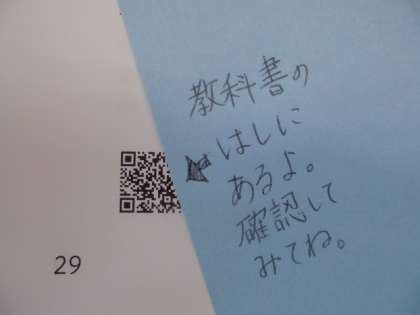 教科書の
はしに
あるよ。
確認して
みてね。
29